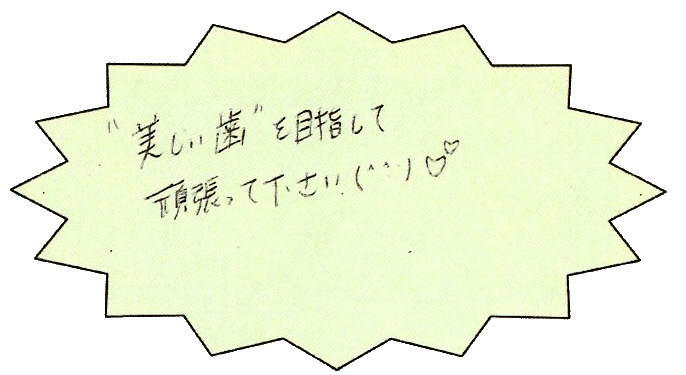 "美しい歯"を目指して
頑張って下さい(^^)♡♡